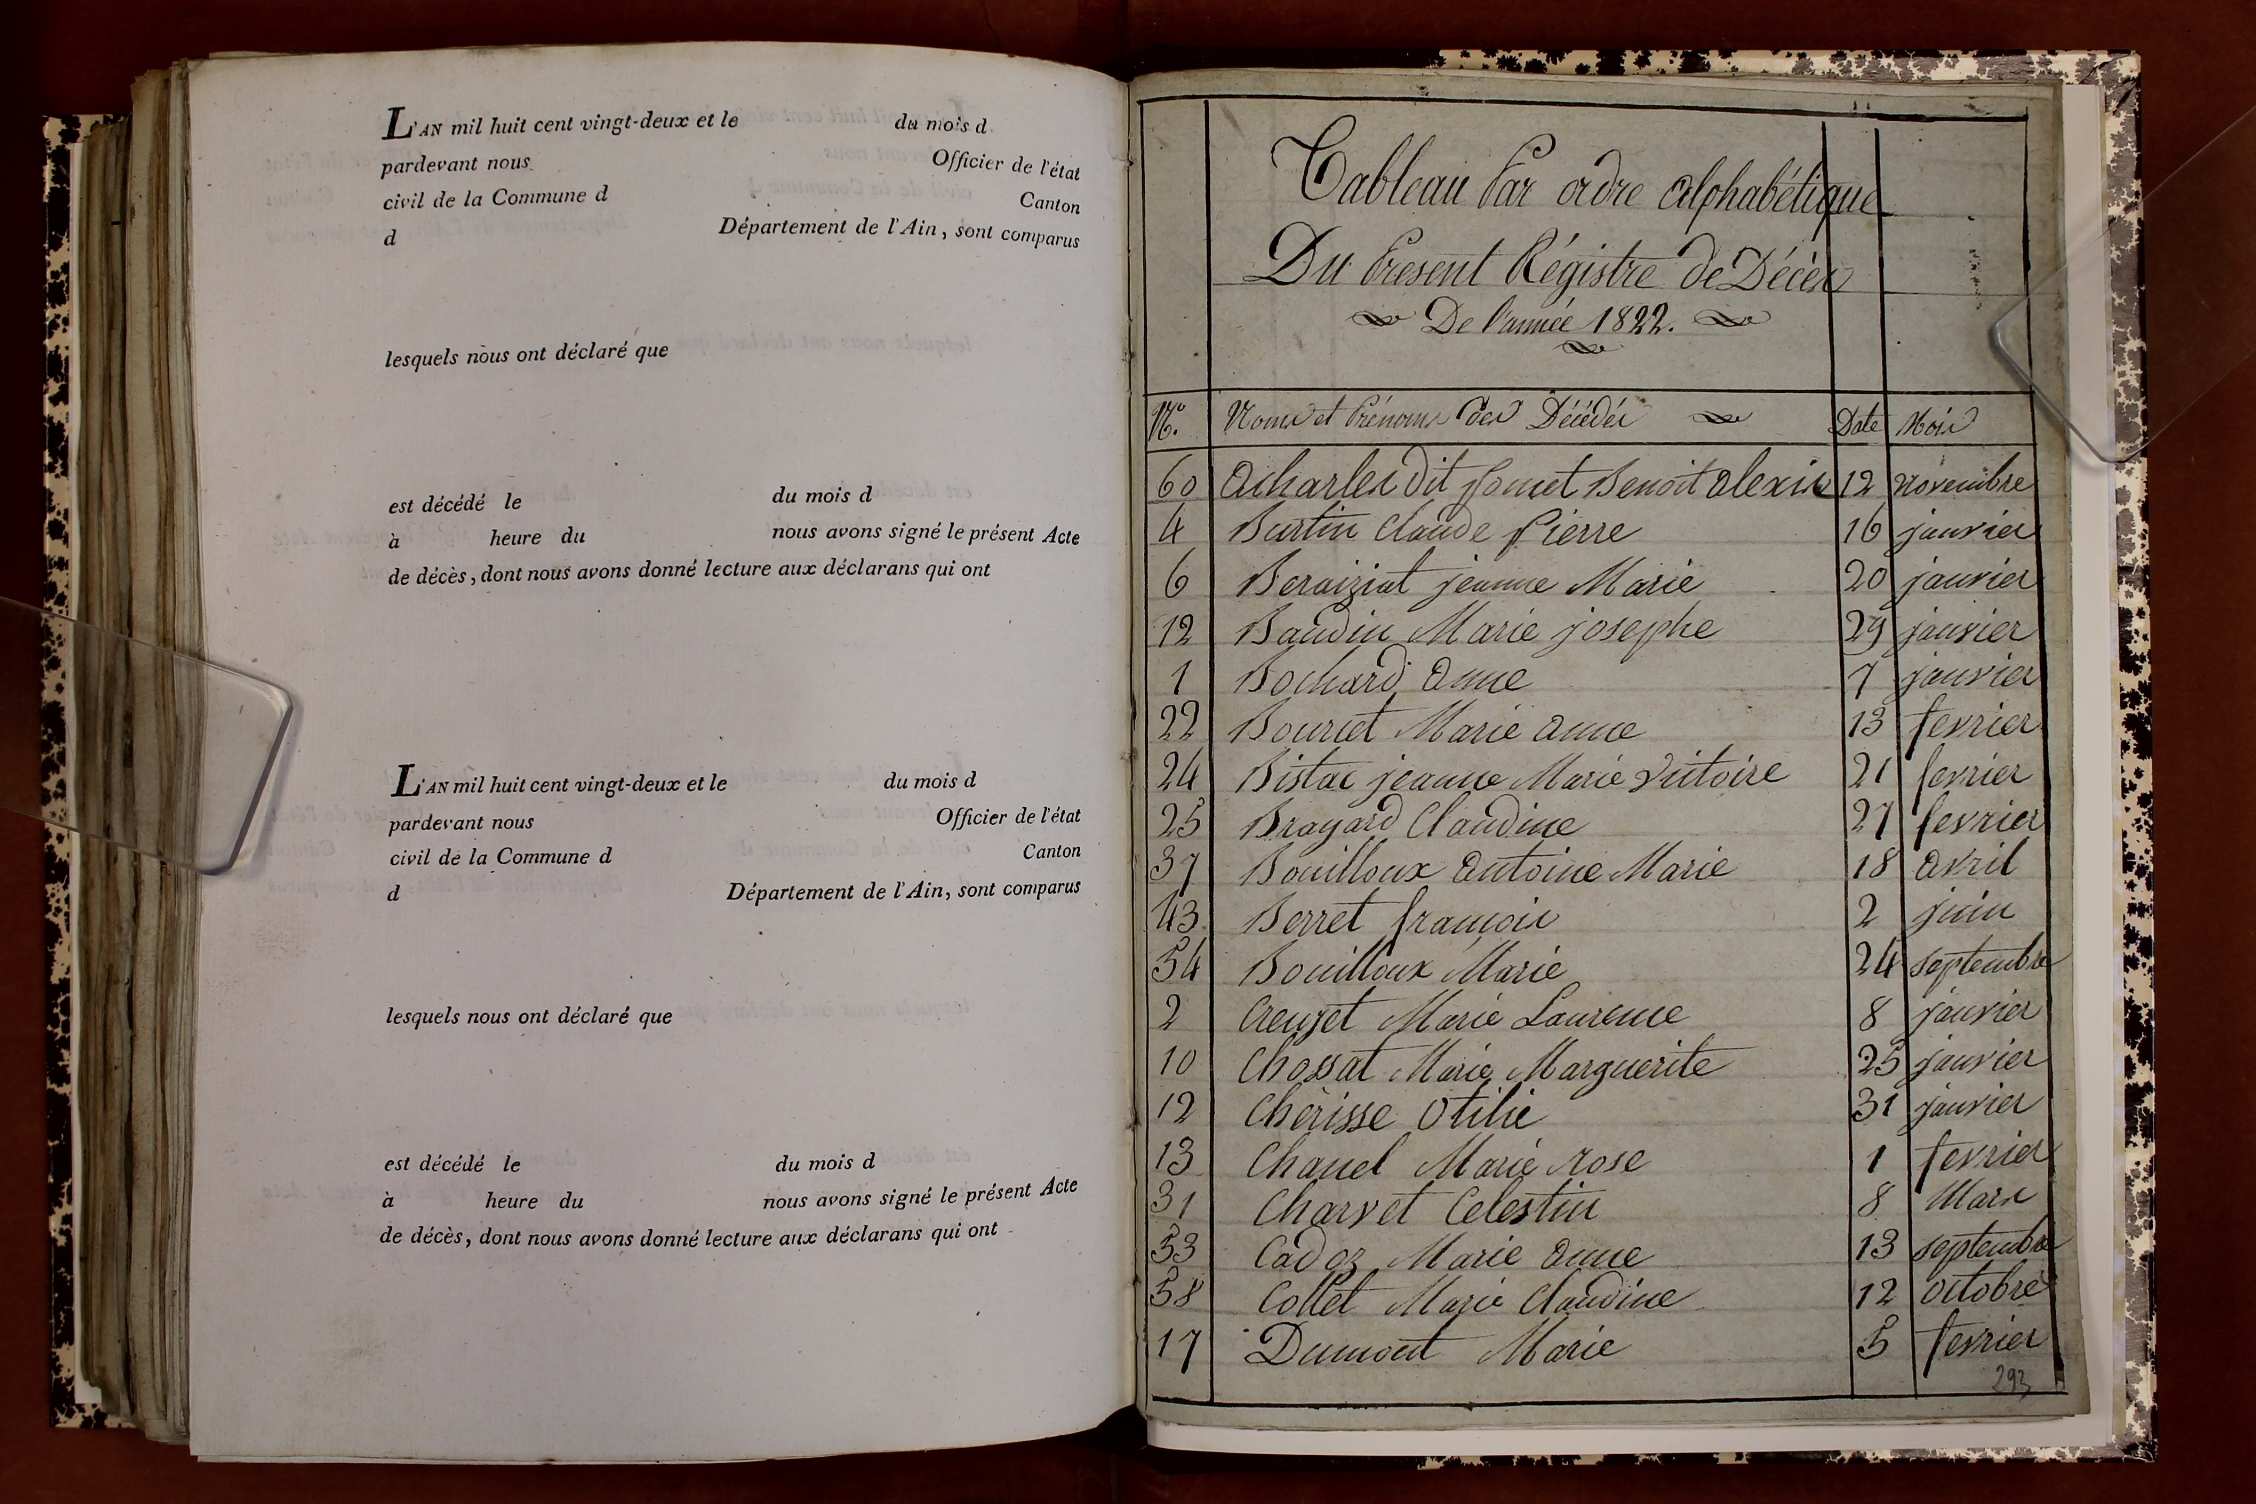 L'AN mil huit cent vingt-deux et le du mois d
pardevant nous Officier de l'état
civil de la Commune d Canton
d Département de l'Ain, sont comparus
lesquels nous ont déclaré que
est décédé le du mois d
à heure du nous avons signé le présent Acte
de décès, dont nous avons donné lecture aux déclarans qui ont
L'AN mil huit cent vingt-deux et le du mois d
pardevant nous Officier de l'état
civil de la Commune d Canton
d Département de l'Ain, sont comparus
lesquels nous ont déclaré que
est décédé le du mois d
à heure du nous avons signé le présent Acte
de décès, dont nous avons donné lecture aux déclarans qui ont
Tableau Par ordre alphabétique
Du Present Régistre de Décès
De l'année 1822.
N.° Noms et Prénoms des Décédés Date Mois
60 Acharles dit Jomet Benoit alexis 12 novembre
4 Burtin Claude Pierre 16 janvier
6 Beraiziat jeanne Marie 20 janvier
12 Baudin Marie josephe 29 janvier
1 Bochard anne 7 janvier
22 Bourcet Marie anne 13 fevrier
24 Bistac jeanne Marie victoire 21 fevrier
25 Brayard Claudine 27 fevrier
37 Bouilloux antoine Marie 18 avril
43 Berret françois 2 juin
54 Bouilloux Marie 24 septembre
2 Creuzet Marie Laurence 8 janvier
10 Chossat Marie Marguerite 25 janvier
12 Chèrisse Otilie 31 janvier
13 Chanel Marie rose 1 fevrier
31 Charvet Celestin 8 Mars
53 Cadoz Marie anne 13 septembre
58 Collet Marie Claudine 12 octobre
17 Dumont Marie 5 fevrier
293